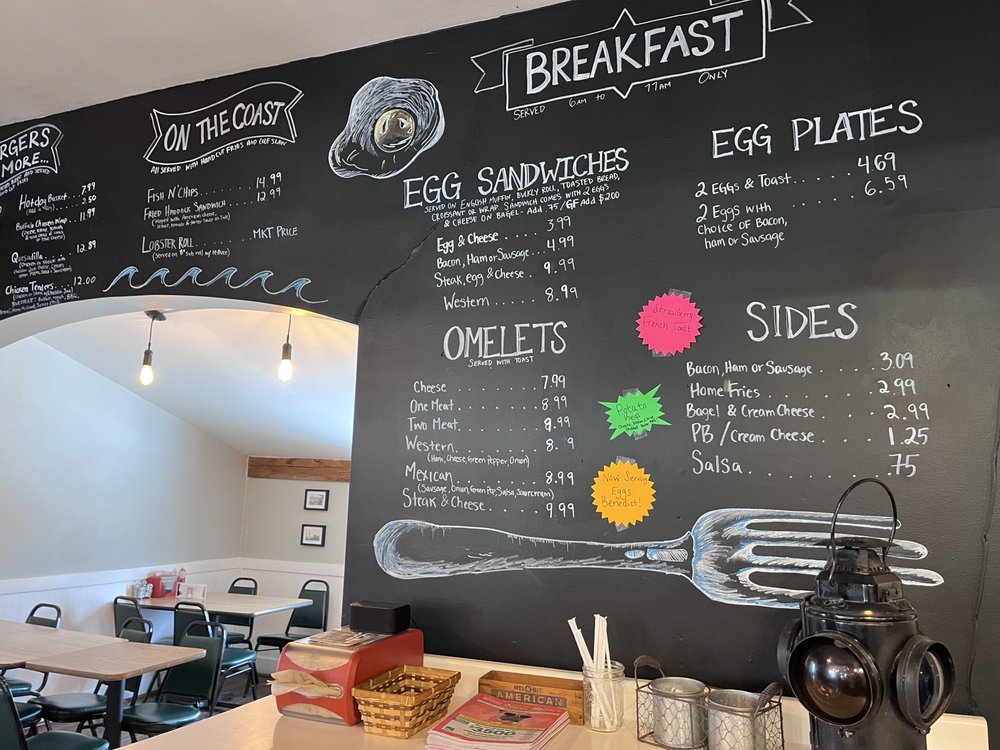 BREAKFAST
SERVED 6AM TO 11AM ONLY
ON THE COAST
ALL SERVED WITH HAND CUT FRIES AND CHEF SLAW
FISH N' CHIPS ... 14.99
FRIED HADDOCK SANDWICH ..... 12.99
LOBSTER ROLL ........ MKT PRICE
(Served on 8" Sub roll w/ lettuce)
RGERS
MORE...
Hotdog Basket ... 7.99
2.50
Buffalo Chicken Wrap ... 11.99
Quesadilla ... 12.89
Chicken Tenders ... 12.00
EGG SANDWICHES
SERVED ON ENGLISH MUFFIN, BULKY ROLL, TOASTED BREAD,
CROISSANT OR WRAP. SANDWICH COMES WITH 2 EGGS
& CHEESE ON BAGEL - ADD .75/GF Add $2.00
Egg & Cheese ...... 3.99
Bacon, Ham or Sausage ... 4.99
Steak, egg & Cheese . 9.99
Western ..... 8.99
OMELETS
SERVED WITH TOAST
Cheese ........ 7.99
One Meat ........ 8.99
Two Meat ....... 8.99
Western ........ 8. 9
(Ham, Cheese, Green Pepper, Onion)
Mexican ........ 8.99
(Sausage, Onion, Green Pep, Salsa, Sourcream)
Steak & Cheese ..... 9.99
EGG PLATES
2 Eggs & Toast ...... 4.69
2 Eggs with 6.59
Choice of Bacon,
ham or Sausage
Strawberry
French Toast
Potato
Now Serving
Eggs
Benedict!
SIDES
Bacon, Ham or Sausage .... 3.09
Home Fries ........ 2.99
Bagel & Cream Cheese .... 2.99
PB/Cream Cheese .... 1.25
Salsa ........ .75
AMERICAN